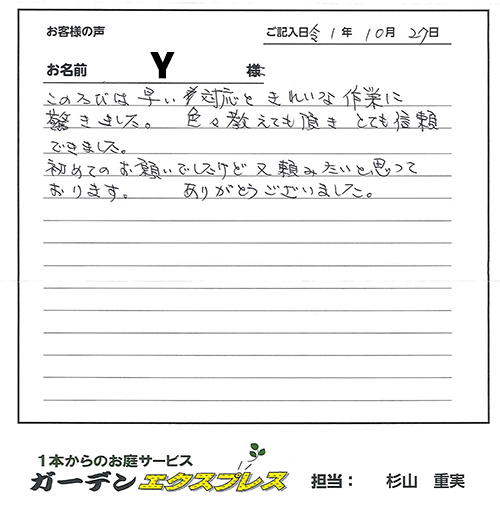 お客様の声
ご記入日 令1年10月27日
お名前 Y 様
このたびは早い対応ときれいな作業に
驚きました。 色々教えても頂きとても信頼
できました。
初めてのお願いでしたけど又頼みたいと思って
おります。 ありがとうございました。
1本からのお庭サービス
ガーデンエクスプレス 担当： 杉山 重実